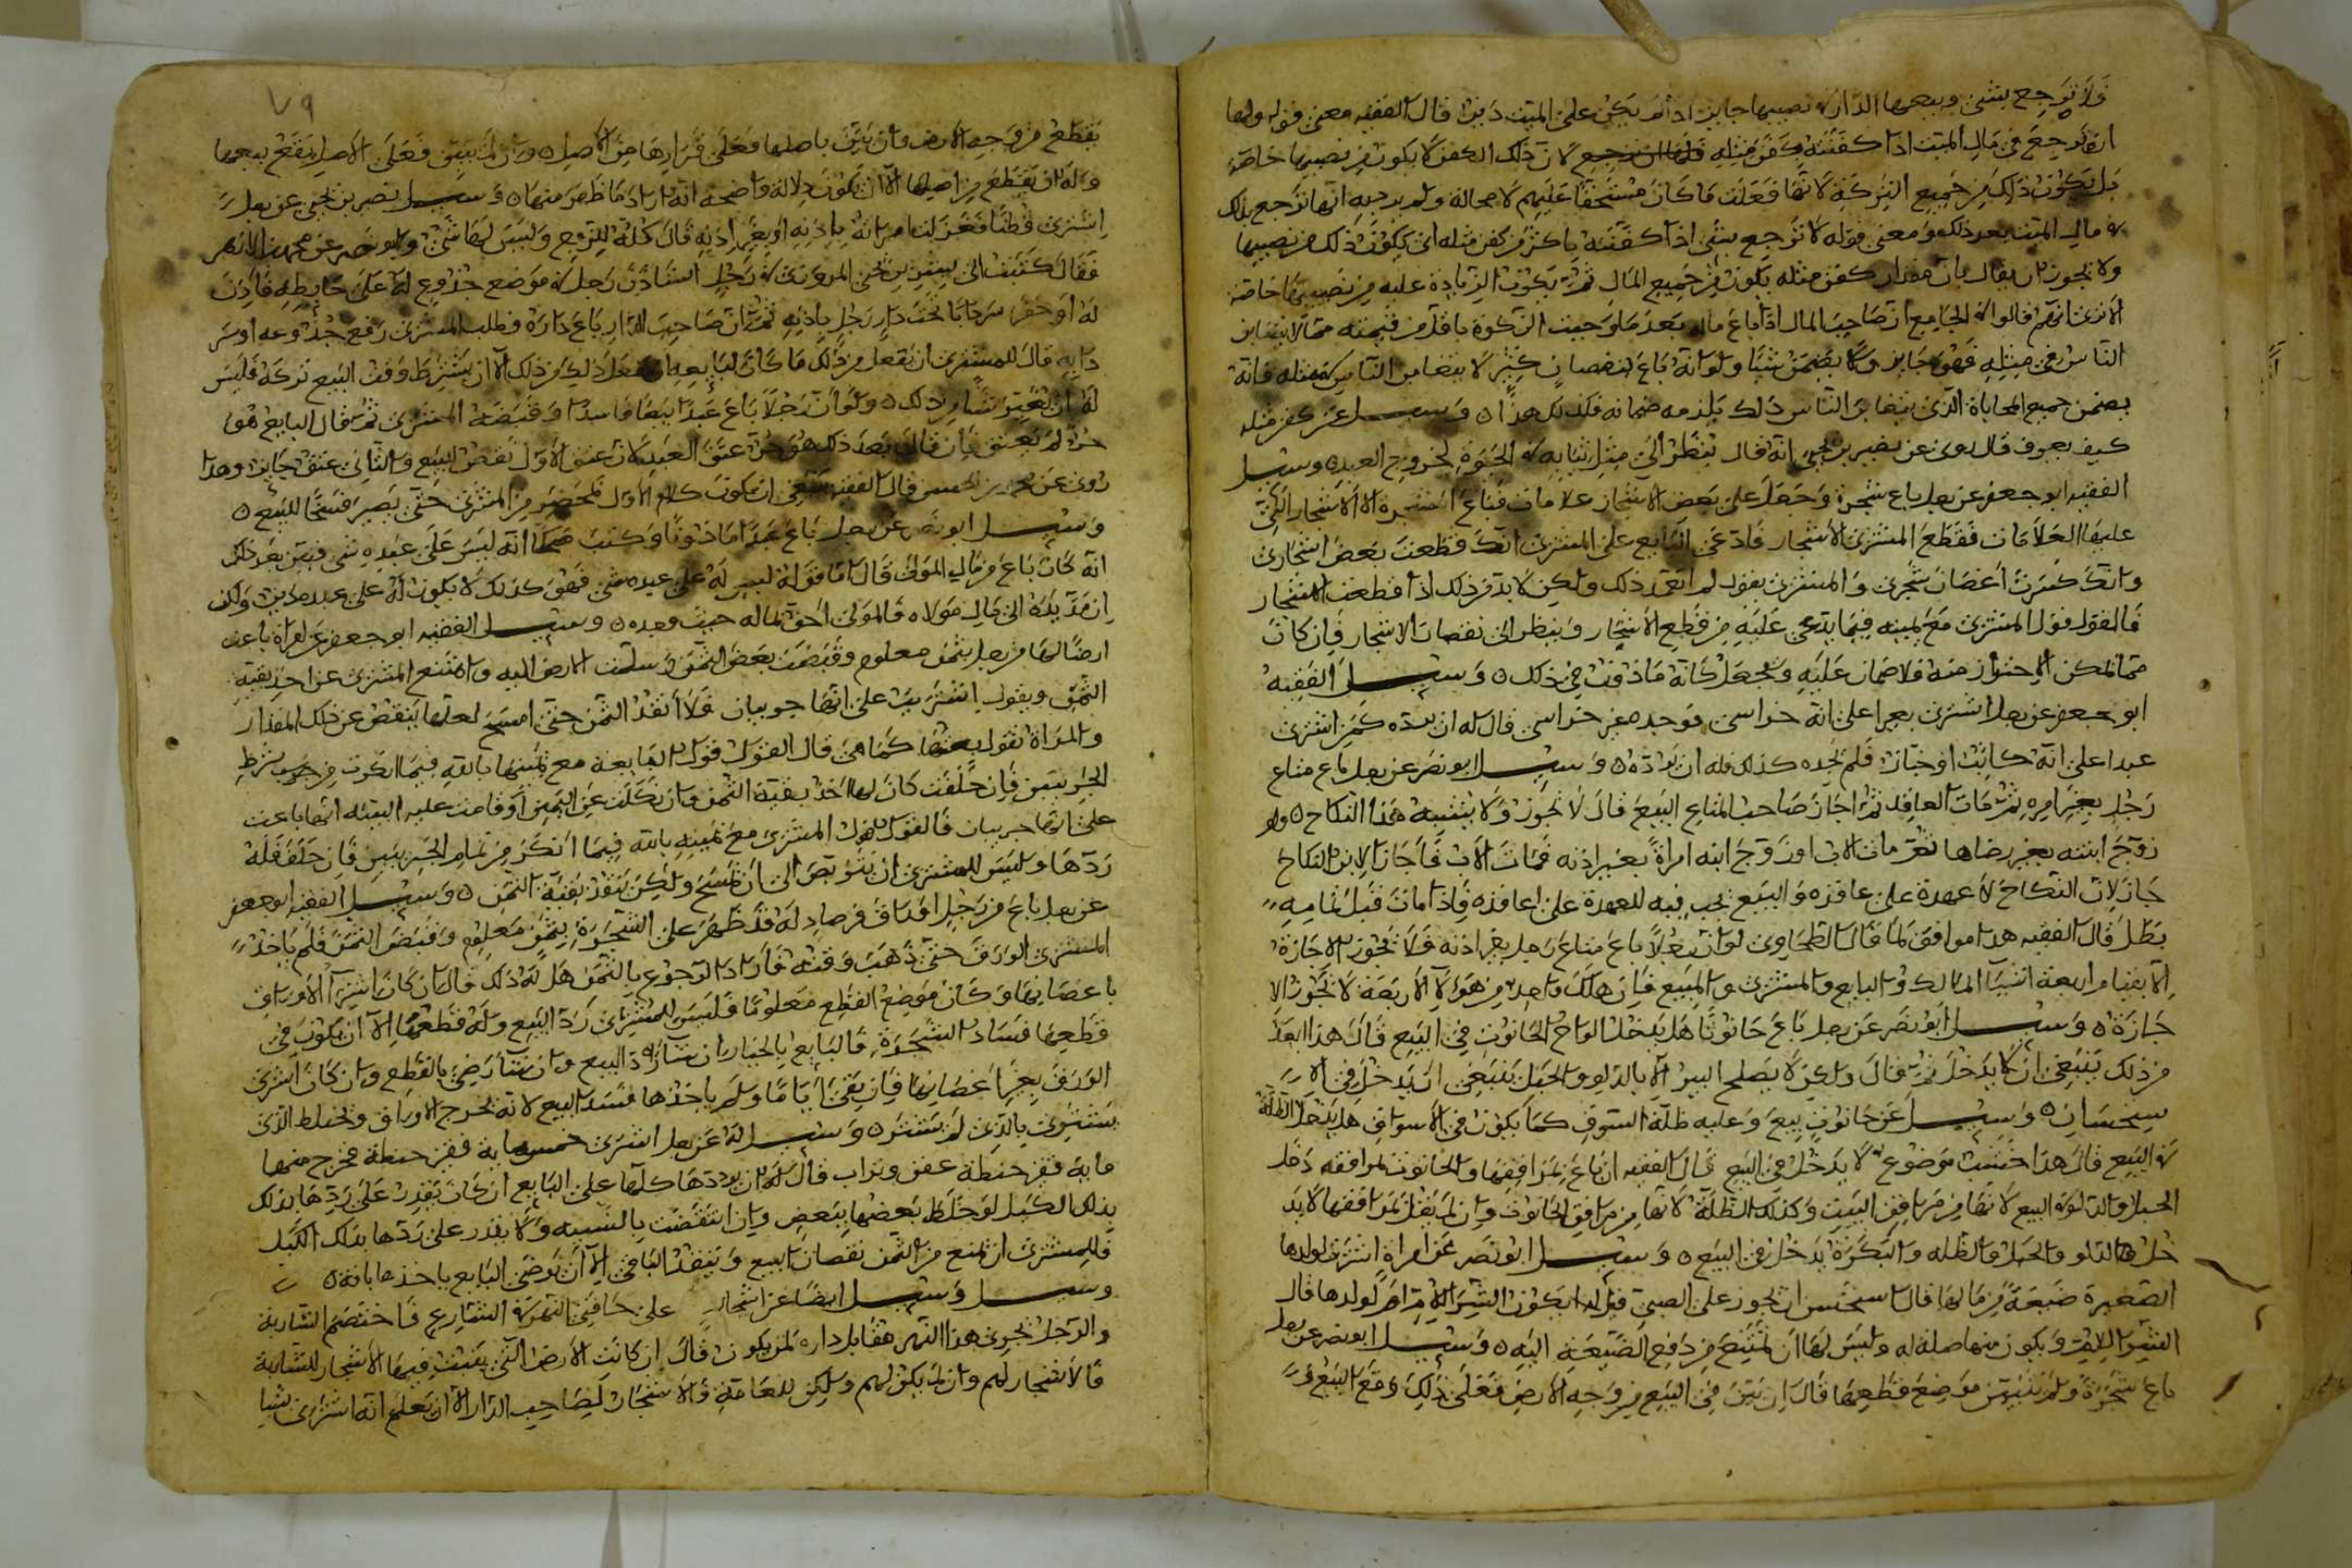 فلا ترجع بشي وبيعها الدار في نصيبها جايز اذا لم يكن على الميت دين قال الفقيه معنى قوله ولها
ان ترجع في مال الميت اذا كفنته كفن مثله لان ذلك الكفن لا يكون من نصيبها خاصة
بل يكون ذلك من جميع التركة لانها فعلت ما كان مستحقا عليهم لا محالة ولم يرد به انها ترجع بذلك
في مال الميت بعد ذلك ومعنى قوله لا ترجع بشي اذا كفنته باكثر من كفن مثله ان يكون ذلك من نصيبها
ولا يجوز ان يقال بان مقدار كفن مثله يكون من جميع المال ثم يكون الزيادة عليه من نصيبها خاصة
الا ترى انهم قالوا في الجامع ان صاحب المال اذا باع ماله بعد ما وجبت الزكوة باقل من قيمته مما لا يتغابن
الناس في مثله فهو جايز ولا يضمن شيئا ولو انه باع بنقصان كثير لا يتغابن الناس في مثله فانه
يضمن جميع المحاباة الذي يتغابن الناس ذلك يلزمه ضمانه فكذلك هذا ه وسيل عن كفن مثله
كيف يعرف قال روى عن نصير بن يحيى انه قال ينظر الى مثل ثيابه في الحيوة لخروج العيد ه وسيل
الفقيه ابو جعفر عن رجل باع شجرة وجعل على بعض الاشجار علامات فباع الشجرة الا الاشجار التي
عليها العلامات فقطع المشتري الاشجار فادعى البايع على المشتري انك قطعت بعض اشجاري
وانك كسرت اغصان شجري والمشتري يقول لم اتعمد ذلك ولكن لا بد من ذلك اذا قطعت الاشجار
فالقول قول المشتري مع يمينه فيما يدعي عليه من قطع الاشجار وينظر الى نقصان الاشجار فان كان
مما لا يمكن الاحتراز منه فلا ضمان عليه ويجعل كانه ماذون في ذلك ه وسيل الفقيه
ابو جعفر عن رجل اشترى بعيرا على انه خراسي فوجده غير خراسي قال له ان يرده كمن اشترى
عبدا على انه كاتب او خباز فلم يجده كذلك فله ان يرده ه وسيل ابو نصر عن رجل باع متاع
رجل بغير امره ثم مات العاقد ثم اجاز صاحب المتاع البيع قال لا يجوز ولا يشبه هذا النكاح ه ولو
زوج ابنته بغير رضاها ثم مات الاب او زوج ابنه امراة بغير اذنه فمات الاب فاجاز الابن النكاح
جاز لان النكاح لا عهدة على عاقده والبيع يجب فيه للعهدة على عاقده فاذا مات قبل تمامه
بطل قال الفقيه هذا موافق لما قال الطحاوي لو ان رجلا باع متاع رجل بغير اذنه فلا تجوز الاجازة
الا بقيام اربعة اشيا المالك والبايع والمشتري والمبيع فان هلك واحد من هؤلا الاربعة لا تجوز الا
جازة ه وسيل ابو نصر عن رجل باع حانوتا هل يدخل الواح الحانوت في البيع قال هذا ابعد
من ذلك ينبغي ان لا يدخل ثم قال ولكن لا يصلح البير الا بالدلو والحبل ينبغي ان يدخل في الا
ستحسان ه وسيل عن حانوت بيع وعليه ظلة السوق كما يكون في الاسواق هل يدخل الظلة
في البيع قال هذا خشب موضوع لا يدخل في البيع قال الفقيه ان باع بمرافقها والحانوت بمرافقه دخل
الحبل والدلو في البيع لانها من مرافق البيت وكذلك الظلة لانها من مرافق الحانوت وان لم يقل بمرافقها لا يد
خل والدلو والحبل والظلة والبكرة يدخل في البيع ه وسيل ابو نصر عن امراة اشترت لولدها
الصغيرة ضيعة من مالها قال استحسن ان يجوز على الصبي فيل له ايكون الشرا للام ام لولدها قال
الشرا للام ويكون منها صلة له وليس لها ان تمتنع من دفع الضيعة اليه ه وسيل ابو نصر عن رجل
باع شجرة ولم يبين موضع قطعها قال ان بين في البيع من وجه الارض فعلى ذلك وقع البيع و
٧٩
يقطع من وجه الارض وان بين باصلها فعلى قرارها من الاصل ه وان لم يبين فعلى الاصل يقع بيعها
وله ان يقطع من اصلها الا ان يكون دلالة واضحة انه اراد ما ظهر منها ه وسيل نصير بن يحيى عن رجل
اشترى قطنا فغزلته امراته باذنه او بغير اذنه قال كله للزوج وليس لها شي
فقال كتبت الى بشر بن يحيى المروزي في رجل استاذن رجل في موضع جذوع له على حايطه فاذن
له او حفر سردابا تحت دار رجل باذنه ثم ان صاحب الدار باع داره فطلب المشتري رفع جذوعه او سر
دابه قال للمشتري ان يفعل من ذلك ما كان للبايع الا ان يشترط وقت البيع تركه فليس
له ان يغير شيا من ذلك ه ولو ان رجلا باع عبدا بيعا فاسدا وقبضه المشتري ثم قال البايع هو
حر لم يعتق فان قال بعد ذلك هو حر عتق العبد لان عتق الاول نقض للبيع والثاني عتق جايز وهذا
روى عن محمد بن الحسن قال الفقيه ينبغي ان يكون كلام الاول بمحضر من المشتري حتى يصير فسخا للبيع ه
وسيل ابو نصر عن رجل باع عبدا ماذونا وكتب صكا انه ليس على عبده شي فبين بعد ذلك
انه كان باع من مال المولى قال اما قوله ليس له على عبده شي فهو كذلك لا يكون له على عبده دين ولكن
ان مد يده الى مال مولاه فالمولى احق بماله حيث وجده ه وسيل الفقيه ابو جعفر عن امراة باعت
ارضا لها من رجل بثمن معلوم وقبضت بعض الثمن وسلمت الارض اليه وامتنع المشتري عن اخذ بقية
الثمن ويقول اشتريت على انها جريبان فلا انقد الثمن حتى امسح لعلها ينقص عن ذلك المقدار
والمراة تقول بعتها كما هي قال القول قول البايعة مع يمينها بالله فيما انكرت من شرط
الجريبين فان حلفت كان لها اخذ بقية الثمن وان نكلت عن اليمين او قامت عليه البينة انها باعت
على انها جريبان فالقول قول المشتري مع يمينه بالله فيما انكر من تمام الجريبين فان حلف فله
ردها وليس للمشتري ان يتربص الى ان تمسح ولكن ينقد بقية الثمن ه وسيل الفقيه ابو جعفر
عن رجل باع من رجل اوراق فرصاد له قد ظهر على الشجرة بثمن معلوم وقبض الثمن فلم ياخذ
المشتري الورق حتى ذهب وقته فاراد الرجوع بالثمن هل له ذلك قال ان كان اشترا الاوراق
باغصانها وكان موضع القطع معلوما فليس للمشتري رد البيع وله قطعها الا ان يكون في
قطعها فساد الشجرة فالبايع بالخيار ان شا رد البيع وان شا رضي بالقطع وان كان اشترى
الورق بغير اغصانها فان بقي اياما ولم ياخذها فسد البيع لانه تخرج الاوراق ويختلط الذي
يشتري بالذي لم يشتره ه وسيل عن رجل اشترى خمسماية قفيز حنطة فخرج منها
ماية قفيز حنطة عفن وتراب قال له ان يردها كلها على البايع ان كان يقدر على ردها بذلك
بذلك الكيل لو خلط بعضها ببعض وان انتقضت بالنسبه ولا يقدر على ردها بذلك الكيل
فللمشتري ان يمنع من الثمن نقصان البيع وينقد الباقي الا ان يرضى البايع ياخذها بافة ه
وسيل وسيل ايضا عن اشجار على حافتي النهر في الشارع فاختصم الشاربة
والرجل يجري هذا النهر مقابل داره لمن يكون قال ان كانت الارض التي نبتت فيها الاشجار للشاربة
فالاشجار لهم وان لم يكن لهم ولكن للعامة فالاشجار لصاحب الدار الا ان يعلم انه اشترى شيا